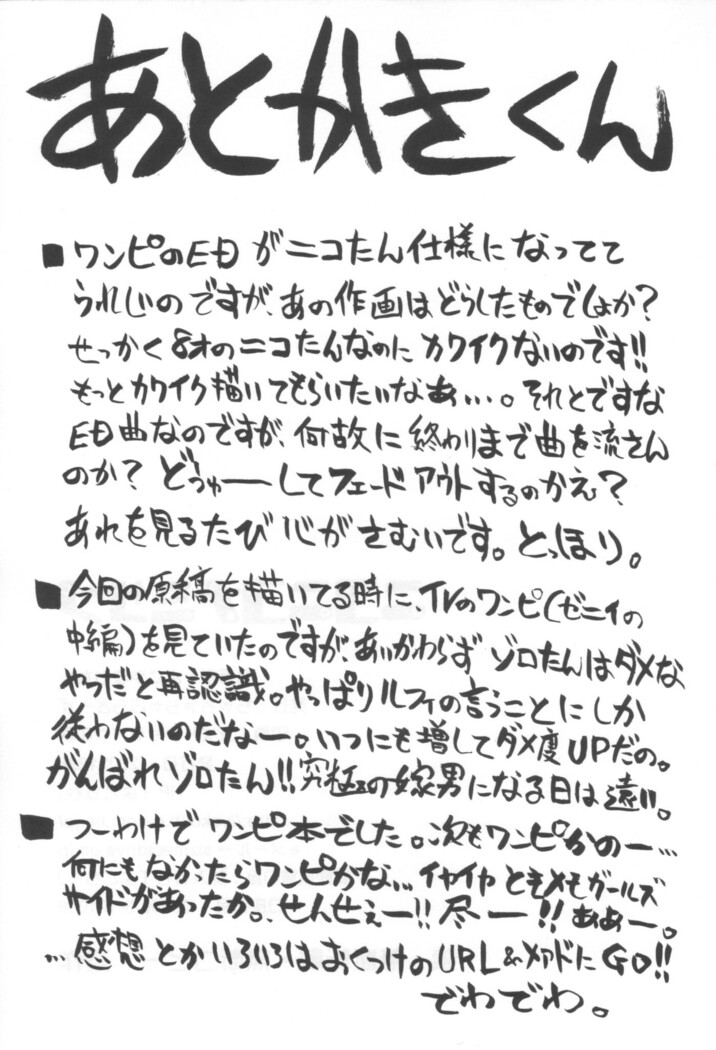 あとがきくん
■ワンピのEDがニコたん仕様になってて
うれしいのですが、あの作画はどうしたものでしょか?
せっかく8才のニコたんなのにカワイクないのです!!
もっとカワイク描いてもらいたいなぁ…。それとですな
ED曲なのですが、何故に終わりまで曲を流さん
のか? どぅゅーしてフェードアウトするのかえ?
あれを見るたび心がさむいです。とっほり。
■今回の原稿を描いてる時に、TVのワンピ(ゼニィの
中編)を見ていたのですが、あいかわらずゾロたんはダメな
やつだと再認識。やっぱりルフィの言うことにしか
従わないのだなー。いつにも増してダメ度UPだの。
がんばれゾロたん!!究極の嫁男になる日は遠い。
■つーわけでワンピ本でした。次もワンピかのー…
何にもなかったらワンピかな…イヤイヤときメもガールズ
サイドがあったか。せんせぇー!!尽ー!!ああー。
…感想とかいろいろはおくつけのURL&メアドにGO!!
でわでわ。